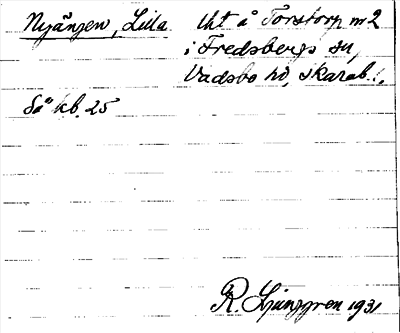 Nyängen, Lilla Uht å Torstorp nr 2
i Fredsbergs sn,
Vadsbo hd, Skarab. l.,
Så kb. 25
R. Ljunggren 1931